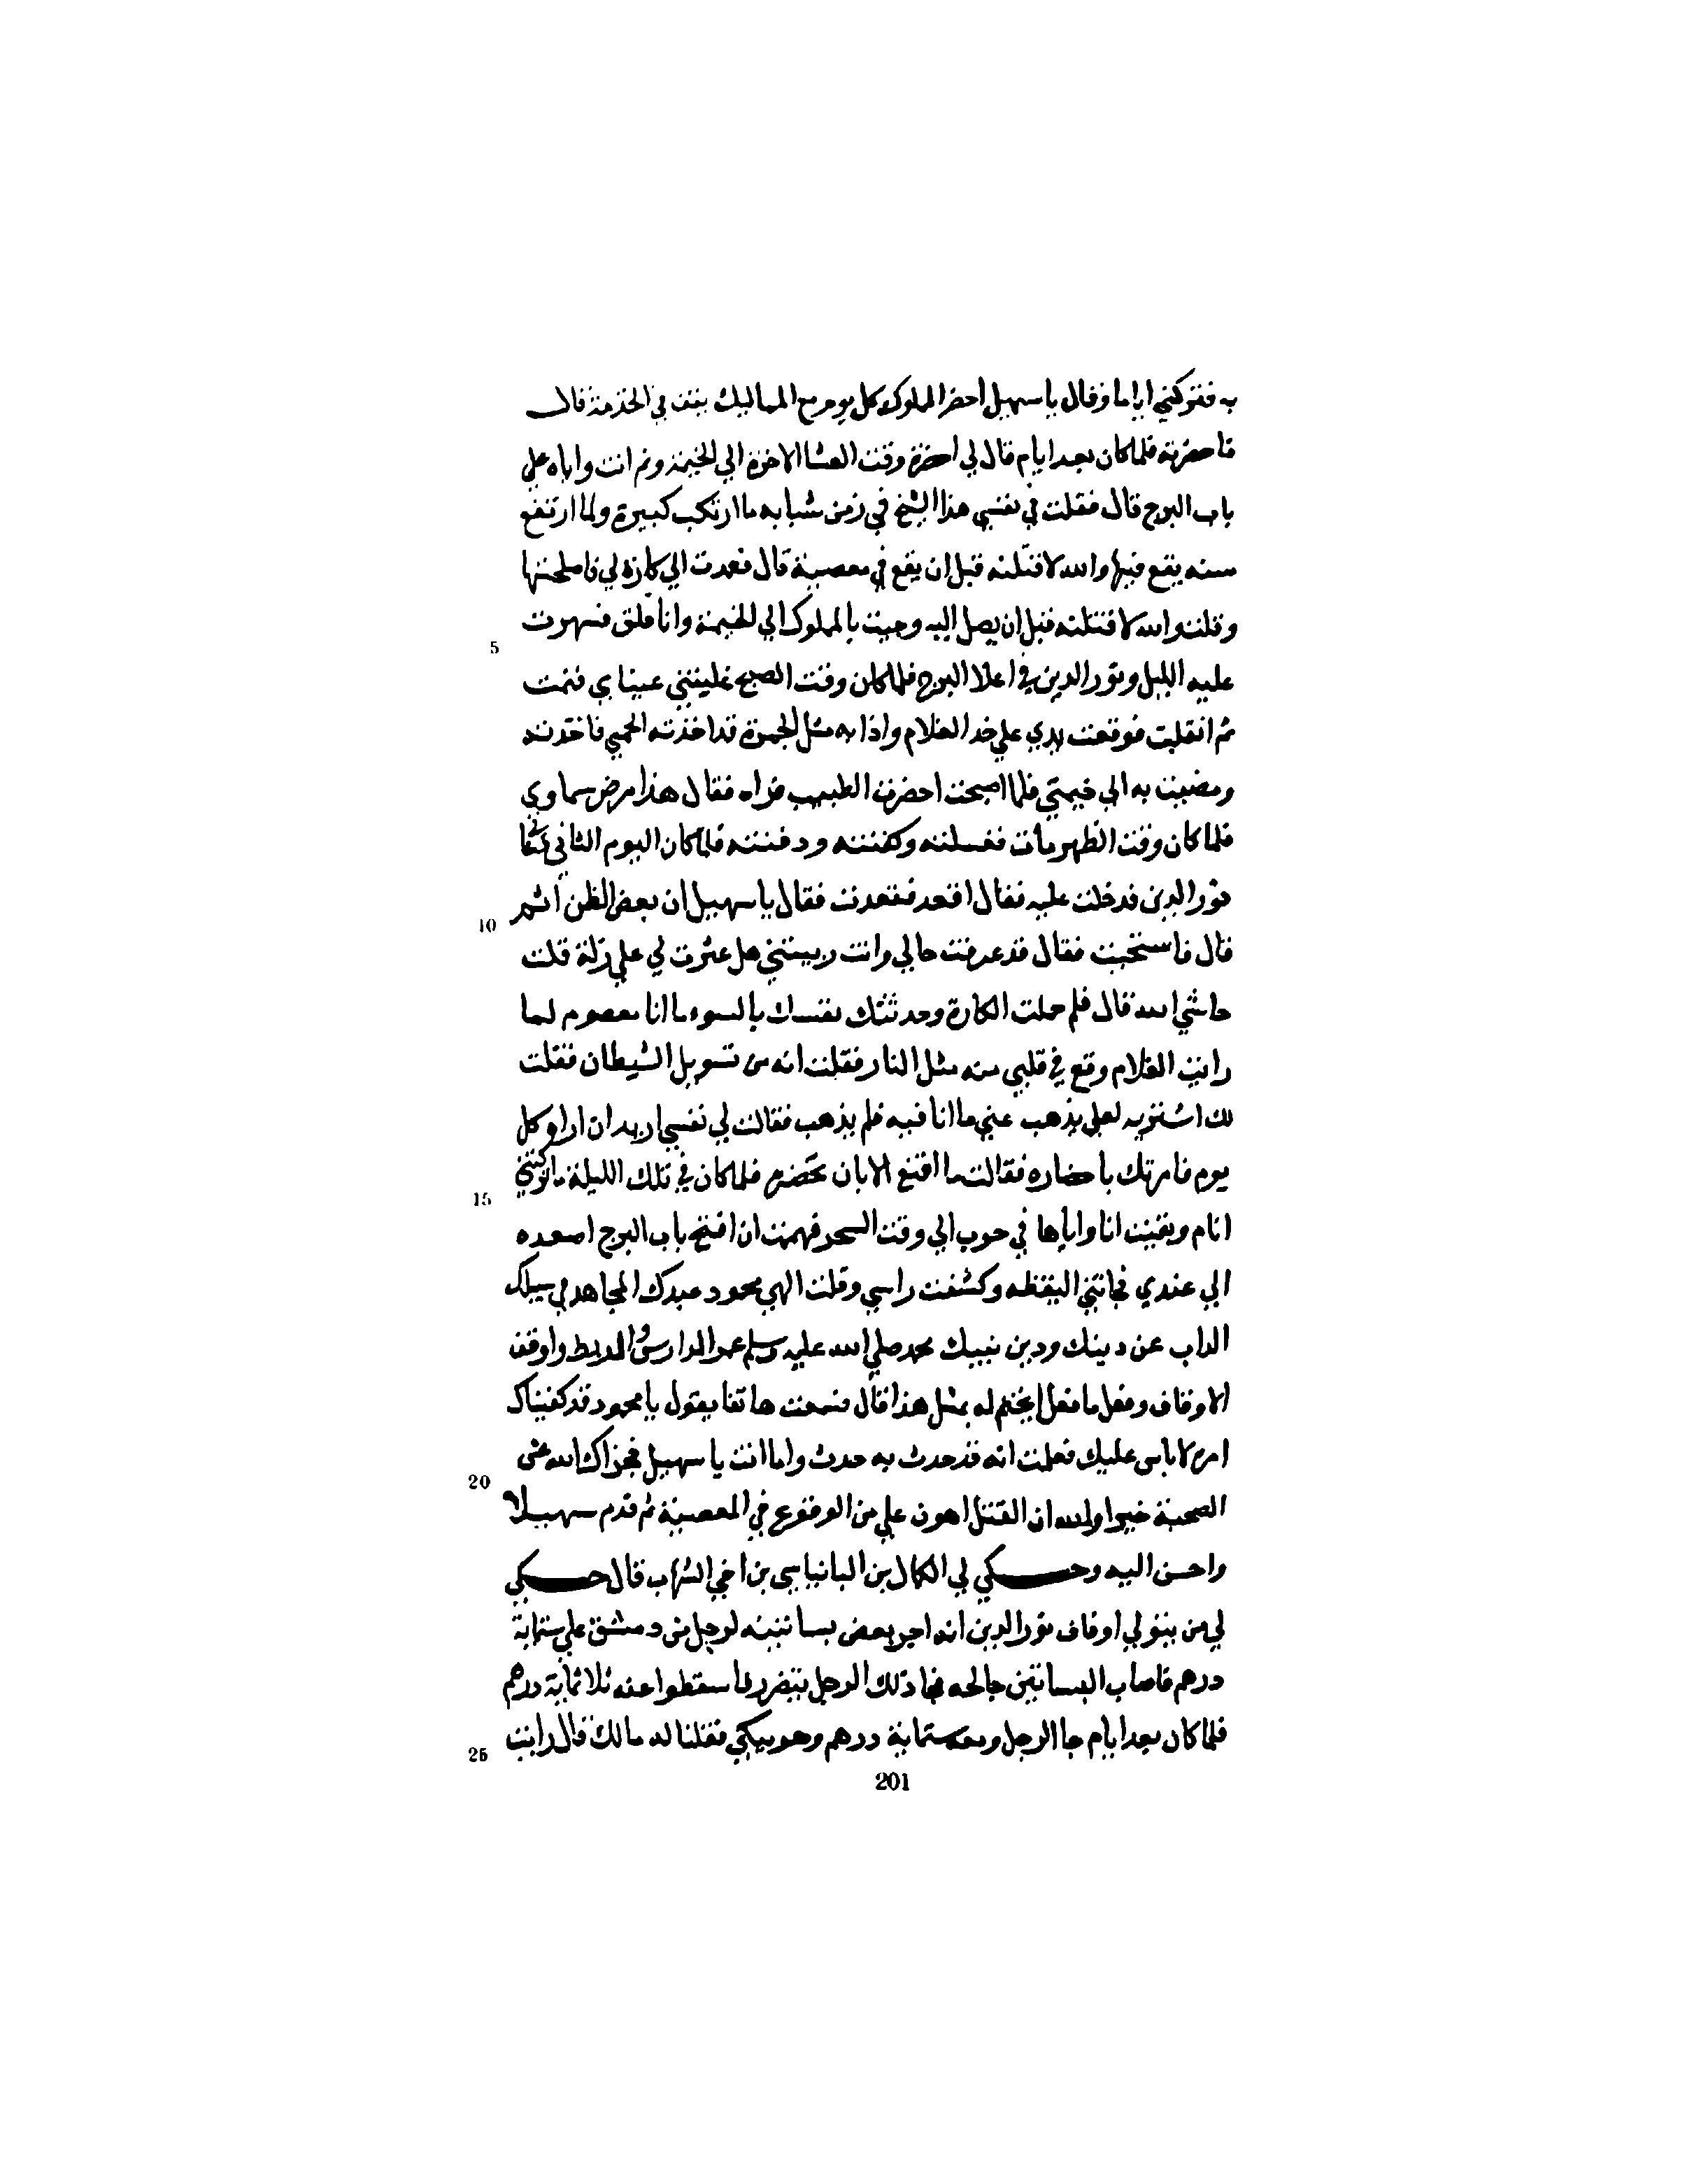 به فتركني اياما وقال يا سهيل احضر المملوك كل يوم مع المماليك يقف في الخدمة قال
فاحضرته فلما كان بعد ايام قال لي احضره وقت العشا الاخرة الي الخيمة ونم انت واياه علي
باب البرج قال فقلت في نفسي هذا الشيخ في زمن شبابه ما ارتكب كبيرة ولما ارتفع
سنه يقع فيها والله لاقتلنه قبل ان يقع في معصية قال فعدت الي كارة لي فاصلحتها
وقلت والله لاقتلنه قبل ان يصل اليه وجيت بالمملوك الي الخيمة وانا قلق فسهرت
عليه الليل ونور الدين في اعلا البرج فلما كان وقت الصبح غلبتني عيناي فنمت
ثم انقلبت فوقعت يدي علي خد الغلام واذا به مثل الجمرة قد اخذته الحمي فاخذته
ومضيت به الي خيمتي فلما اصبحت احضرت الطبيب فراه فقال هذا مرض سماوي
فلما كان وقت الظهر مات فغسلته وكفنته ودفنته فلما كان اليوم الثاني
نور الدين فدخلت عليه فقال اقعد فقعدت فقال يا سهيل ان بعض الظن اثم
قال فاستحييت فقال قد عرفت حالي وانت ربيتني هل عثرت لي علي زلة قلت
حاشي الله قال فلم حملت الكارة وحدثتك نفسك بالسوء ما انا معصوم لما
رايت الغلام وقع في قلبي منه مثل النار فقلت انه من تسويل الشيطان فقلت
لك اشتريه لعلي يذهب عني ما انا فيه فلم يذهب فقالت لي نفسي اريد ان اراه كل
يوم فامرتك باحضاره فقالت ما اقنع الا بان تحضره فلما كان في تلك الليلة ما تركتني
انام وبقيت انا واياها في حرب الي وقت السحر فهممت ان افتح باب البرج اصعده
الي عندي فجاتني اليقظه وكشفت راسي وقلت الهي محمود عبدك المجاهد في سبيلك
الذاب عن دينك ودين نبيك محمد صلي الله عليه وسلم عمر المدارس والربط واوقف
الاوقاف وفعل ما فعل ايختم له بمثل هذا قال فسمعت هاتفا يقول يا محمود قد كفيناك
امره لا باس عليك فعلمت انه قد حدث به حدث واما انت يا سهيل فجزاك الله عني
الصحبة خيرا والله ان القتل اهون علي من الوقوع في المعصية ثم قدم سهيلا
واحسن اليه وحكي لي الكمال بن البانياسي بن اخي الشهاب قال حكي
لي من يتولي اوقاف نور الدين انه اجر بعض بساتينه لرجل من دمشق علي ستماية
درهم فاصاب البساتين جالحه فجا ذلك الرجل يتضرر فاسقطوا عنه ثلاثماية درهم
فلما كان بعد ايام جا الرجل ومعه ستماية درهم وهو يبكي فقلنا له مالك قال رايت
5
10
15
20
25
201